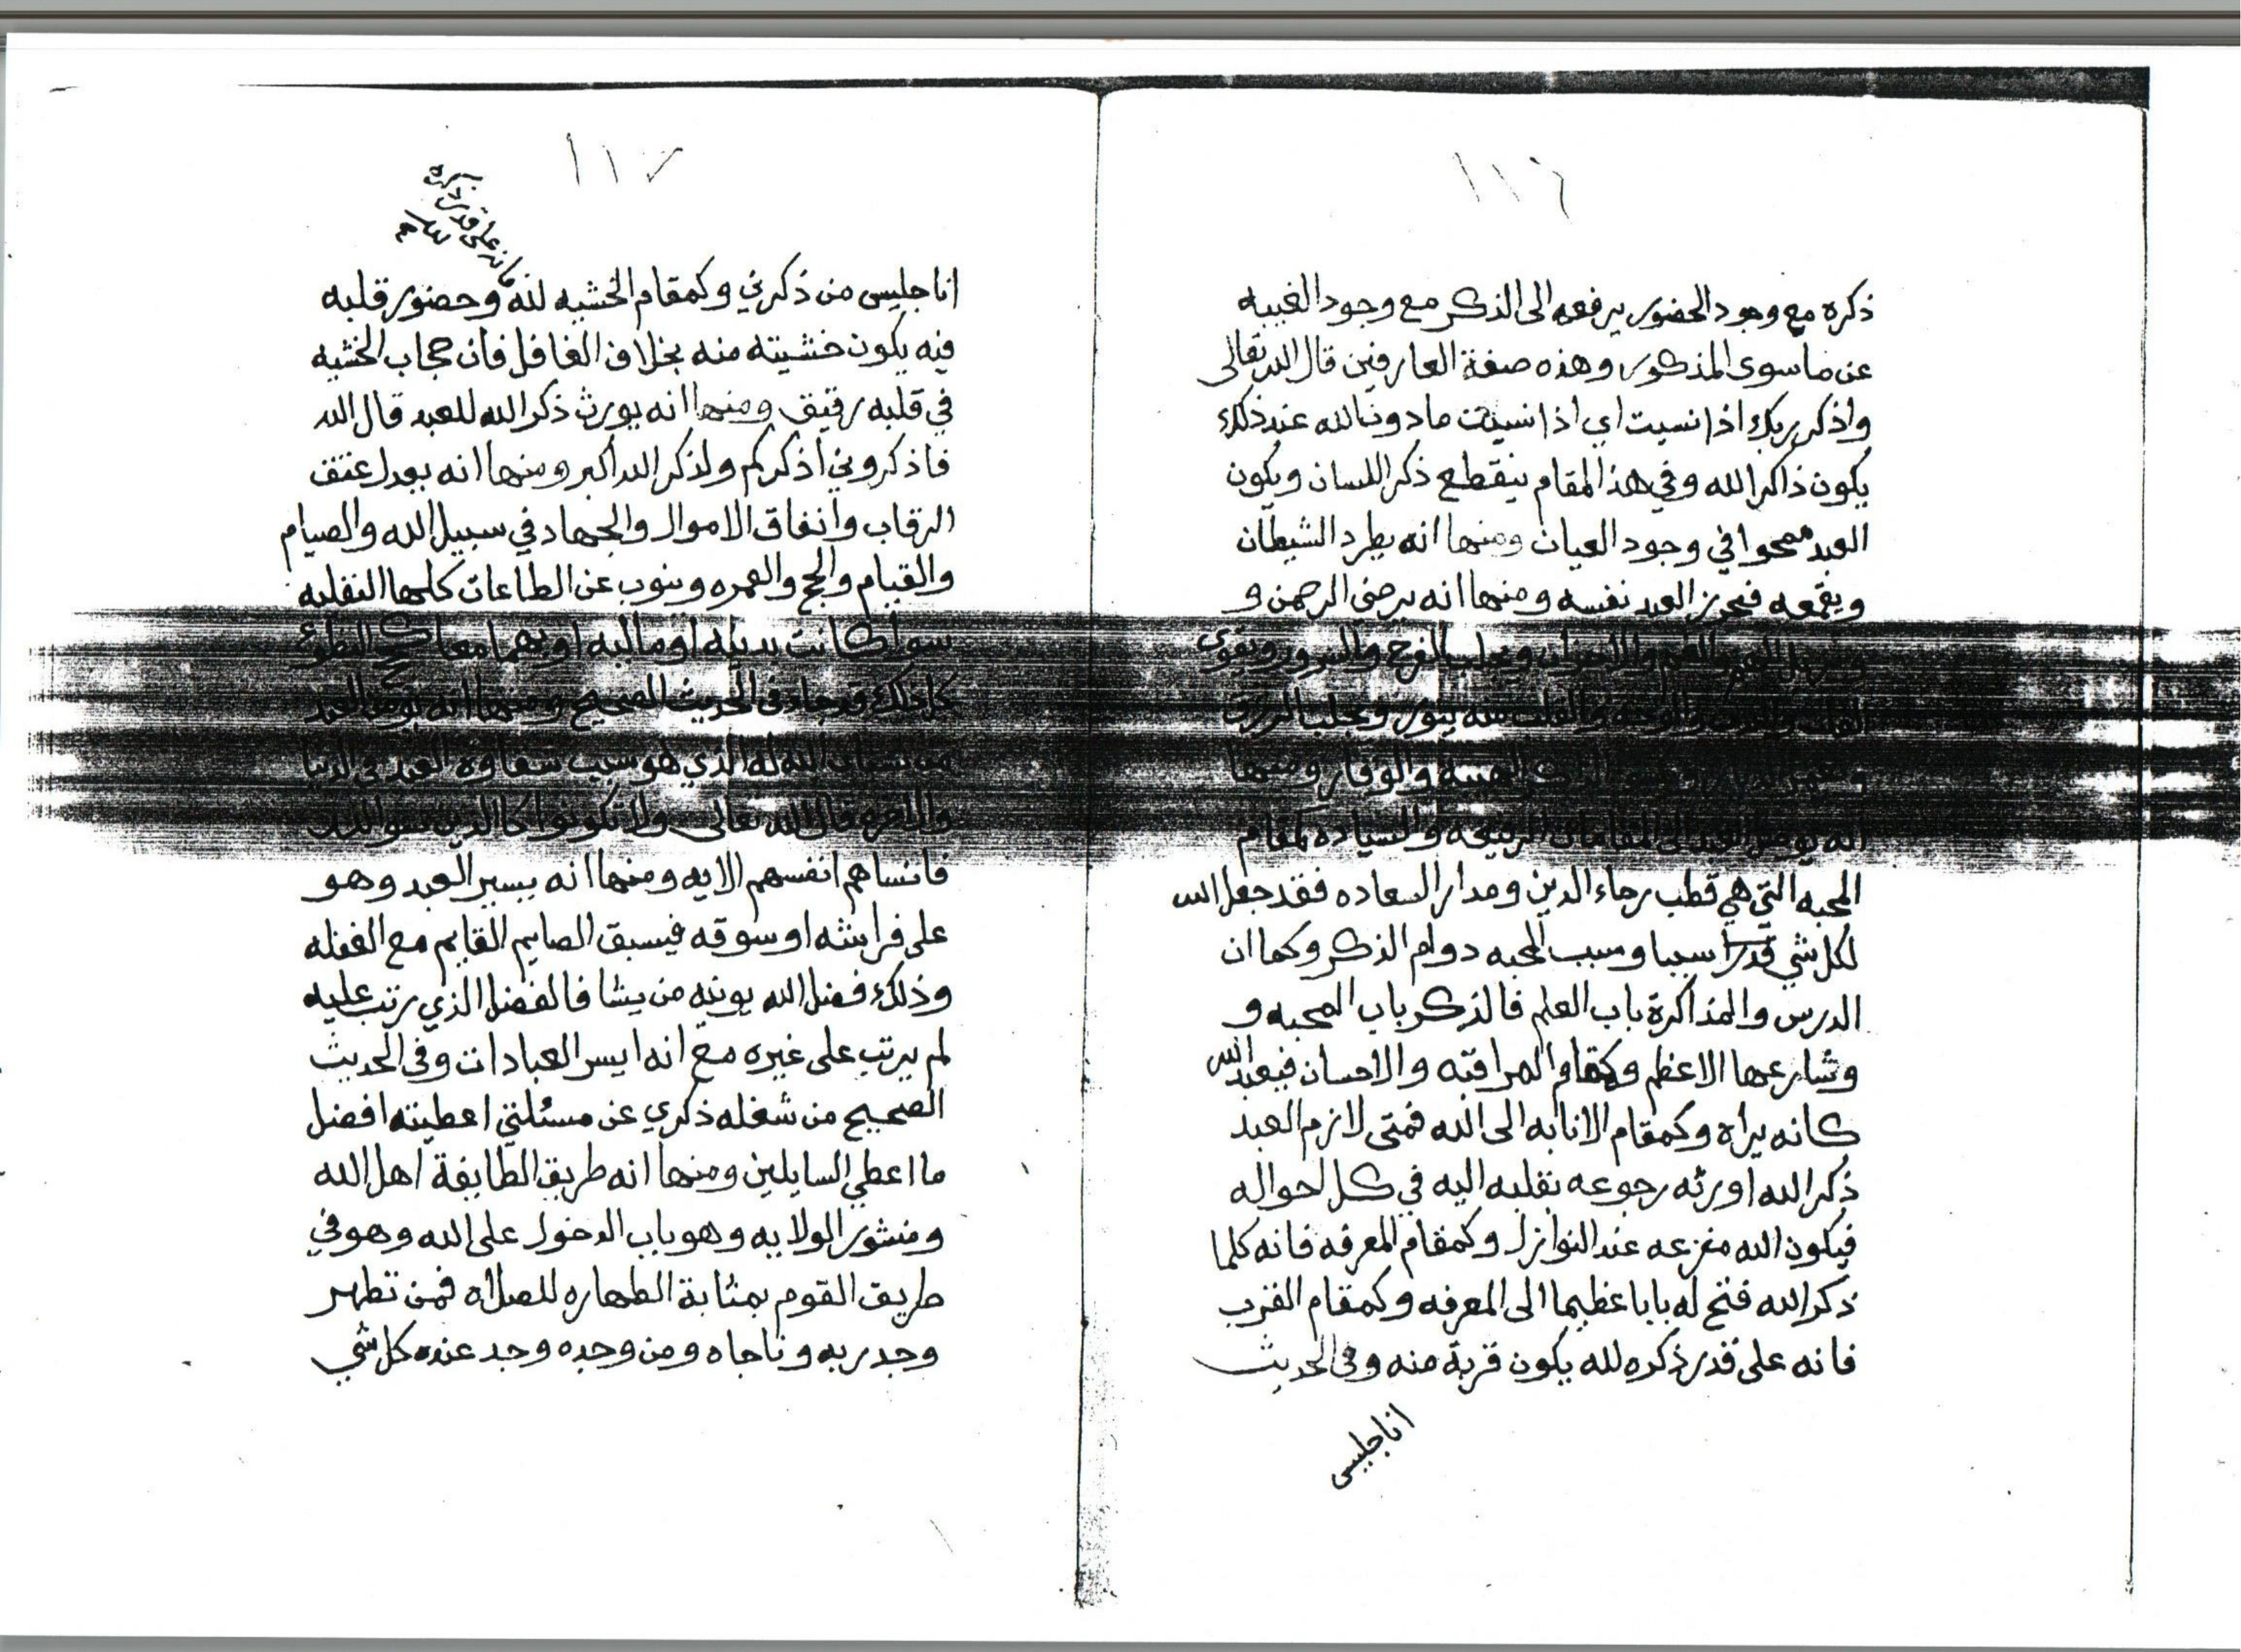 ١١٦
ذكره مع وجود الحضور يرفعه الى الذكر مع وجود الغيبه
عن ما سوى المذكور وهذه صفة العارفين قال الله تعالى
واذكر ربك اذا نسيت اي اذا نسيت ما دون الله عند ذلك
يكون ذاكرا لله وفي هذا المقام ينقطع ذكر اللسان ويكون
العبد ممحوا في وجود العيان ومنها انه يطرد الشيطان
ويقمعه فيحرز العبد نفسه ومنها انه يرضي الرحمن و
ويزيل الهم والغم والاحزان ويجلب الفرح والسرور ويقوى
القلب والبدن والوجه والقلب منه ينور ويجلب الرزق
الذاكر الهيبه والوقار ومنها
انه يوصل العبد الى المقامات الرفيعه والسياده كمقام
المحبه التي هي قطب رحاء الدين ومدار السعاده فقد جعل الله
لكل شي قدرا سببا وسبب المحبه دوام الذكر وكما ان
الدرس والمذاكرة باب العلم فالذكر باب المحبه و
وشارعها الاعظم وكمقام المراقبه والاحسان فيعبد الله
كانه يراه وكمقام الانابه الى الله فمتى لازم العبد
ذكر الله اورثه رجوعه بقلبه اليه في كل احواله
فيكون الله مفزعه عند النوازل وكمقام المعرفه فانه كلما
ذكر الله فتح له بابا عظيما الى المعرفه وكمقام القرب
فانه على قدر ذكره لله يكون قربة منه وفي الحديث
انا جليس
١١٧
فانه على قدر
انا جليس من ذكرني وكمقام الخشيه لله وحضور قلبه
فيه يكون خشيته منه بخلاف الغافل فان حجاب الخشيه
في قلبه رقيق ومنها انه يورث ذكر الله للعبد قال الله
فاذكروني اذكركم ولذكر الله اكبر ومنها انه يعدل عتق
الرقاب وانفاق الاموال والجهاد في سبيل الله والصيام
والقيام والحج والعمره وينوب عن الطاعات كلها النفليه
سوا كانت بدنيه او ماليه او بهما معا كحج التطوع
كل ذلك قد جاء في الحديث الصحيح ومنها انه يومن العبد
من نسيان الله له الذي هو سبب شقاوة العبد في الدنيا
والاخره قال الله تعالى ولا تكونوا كالذين نسو الله
فانساهم انفسهم الايه ومنها انه يسير العبد وهو
على فراشه او سوقه فيسبق الصايم القايم مع الغفله
وذلك فضل الله يوتيه من يشا فالفضل الذي رتب عليه
لم يرتب على غيره مع انه ايسر العبادات وفي الحديث
الصحيح من شغله ذكري عن مسئلتي اعطيته افضل
ما اعطي السايلين ومنها انه طريق الطايفة اهل الله
ومنشور الولايه وهو باب الدخول على الله وهو في
طريق القوم بمثابة الطهاره للصلاه فمن تطهر
وجد ربه وناجاه ومن وجده وجد عنده كل شي